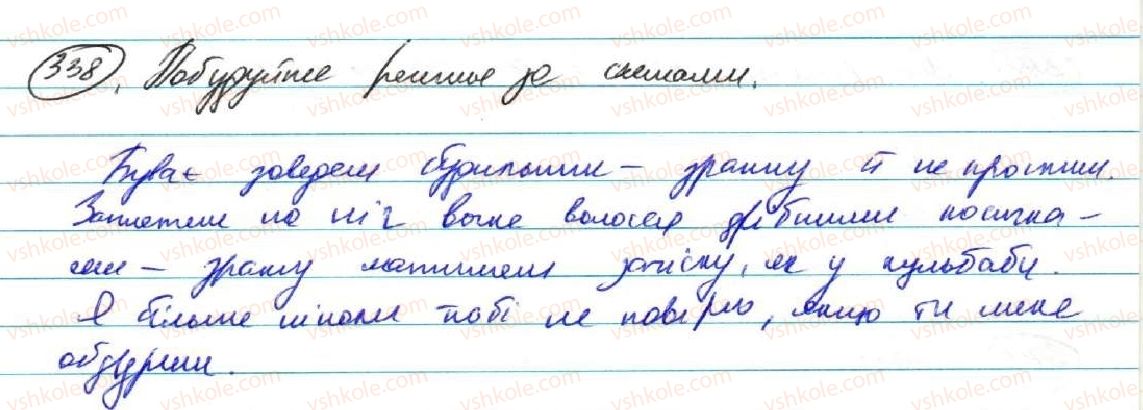 338. Побудуйте речення за схемами.
Буває заведеш будильник – зранку й не проспиш.
Заплетеш на ніч вогке волосся дрібними косичка-
ми – зранку матимеш зачіску, як у кульбаби.
Я більше ніколи тобі не повірю, якщо ти мене
обдуриш.